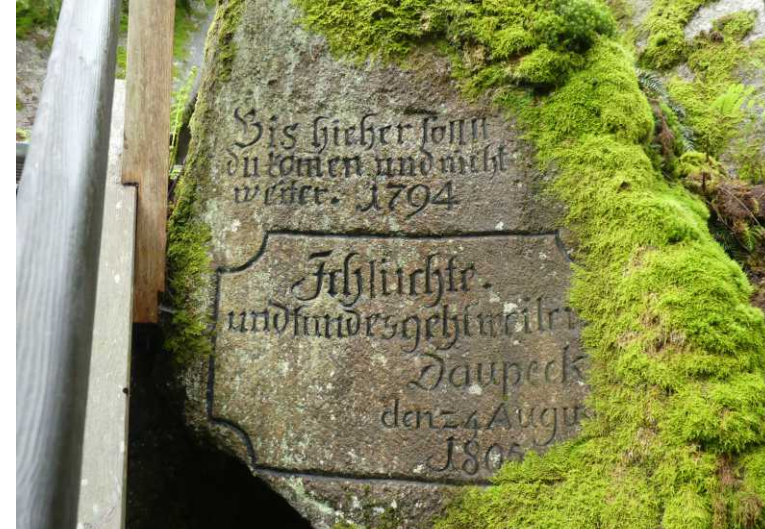 Bis hieher sollst
du komen und nicht
weiter. 1794
Ich suchte.
und fund es geht weiter
Daupeck
den 24 Augu
1805